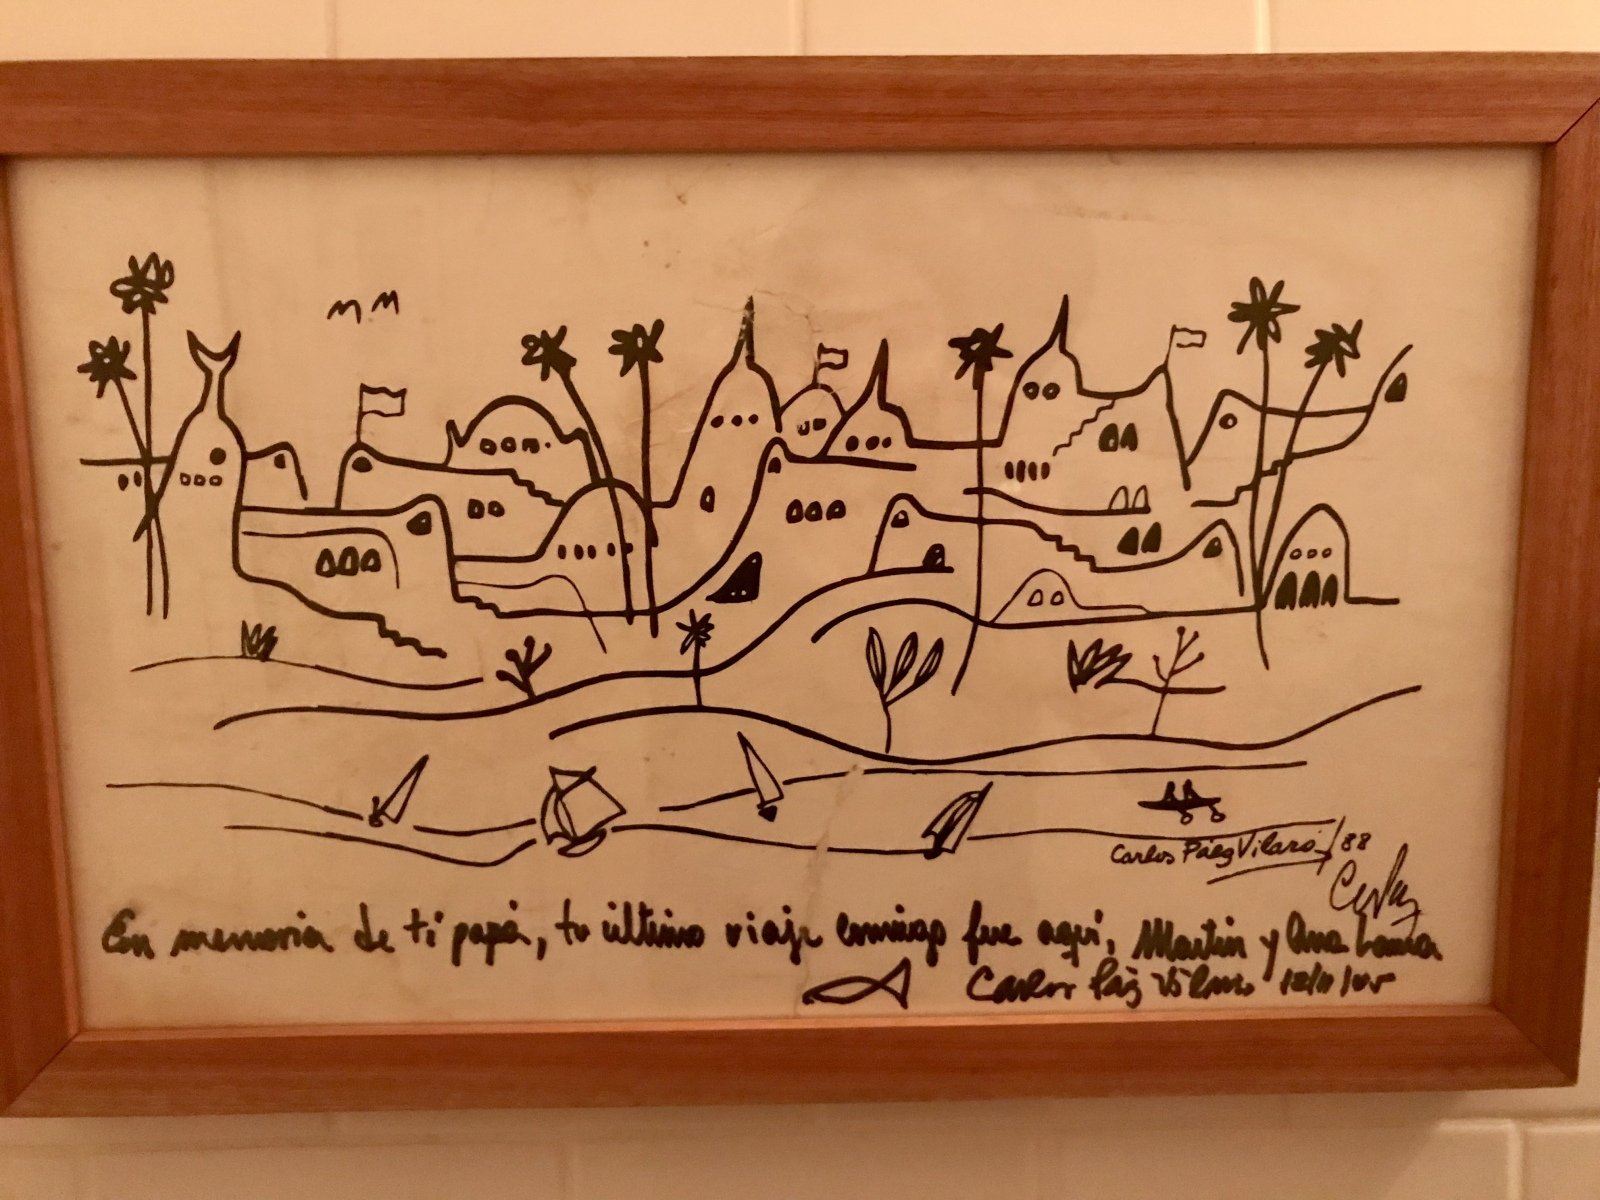 Carlos Páez Vilaró / 88
En memoria de ti papá, tu último viaje conmigo fue aquí, Martin y Ana Laura
Carlos Páez Vilaró 12/11/05